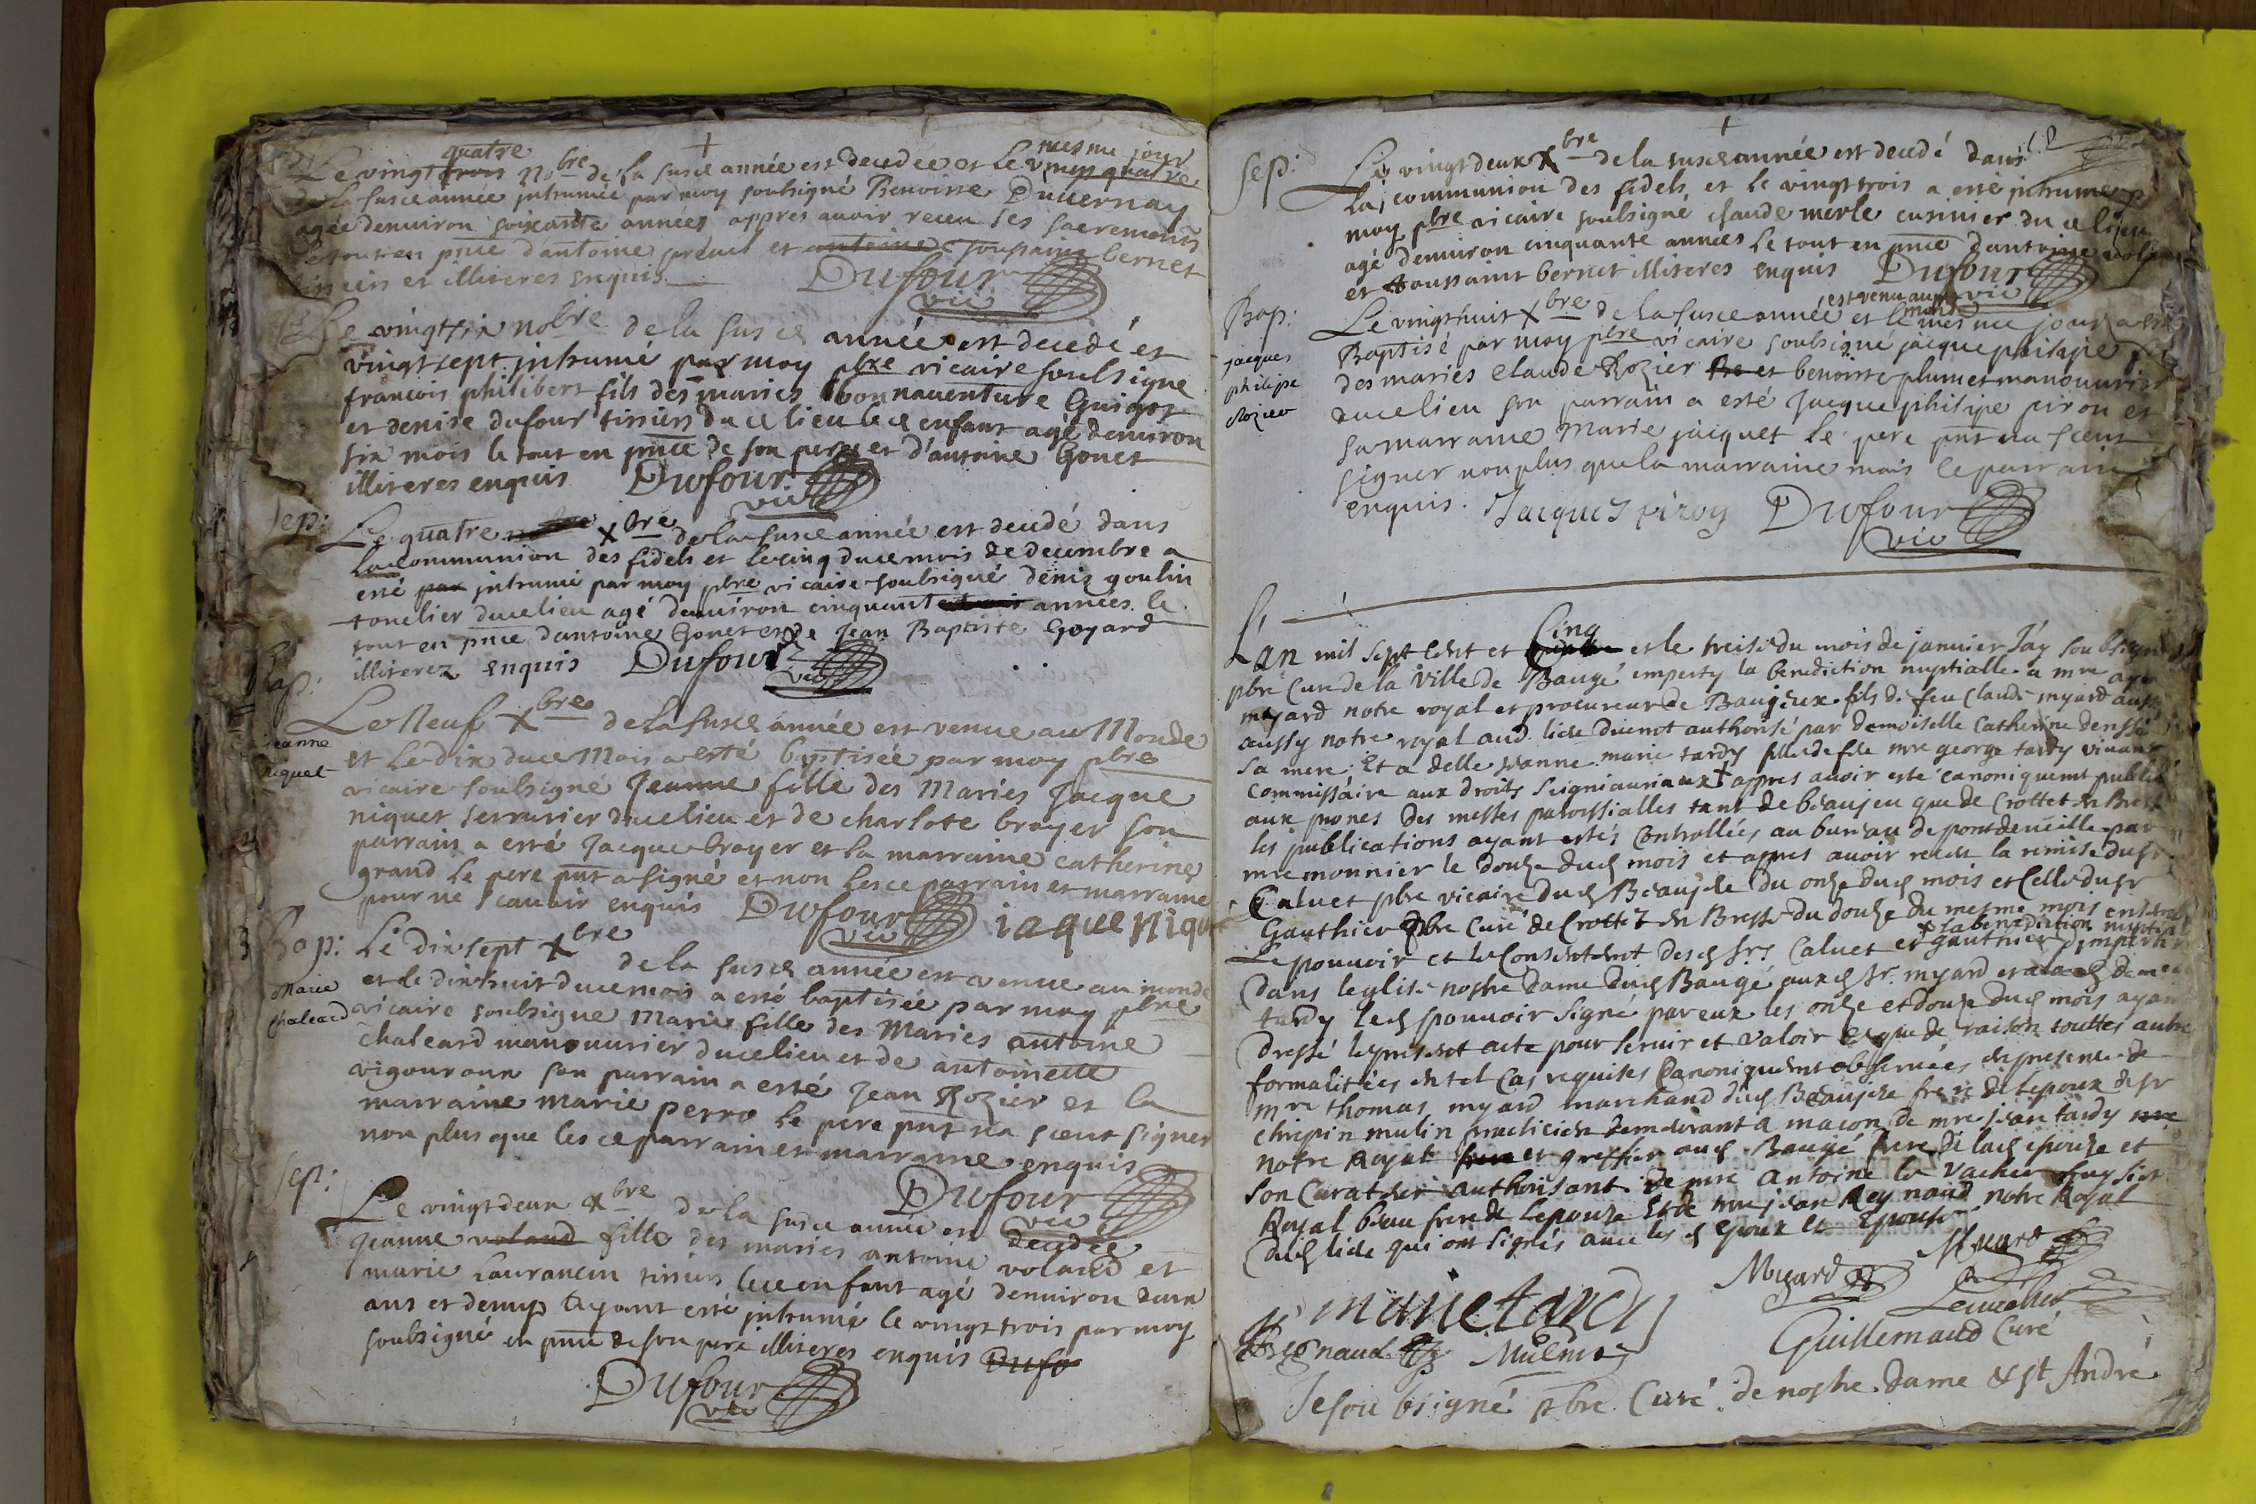 quatre
mesme jour
Le vingt trois nobre de la susd année est decedee et le vingt quatre
de la susd année inhumée par moy soubsigné Benoitte Duvernay
agée denuiron soixante années appres auoir receu ses sacrements
le tout en pnce d'antoine et antoine toussaint bernet
tissiers et illiteres enquis
Dufour
vic
Le vingt six nobre de la susd année est decedé et
vingt sept inhumé par moy pbre vicaire soubsigne
francois philibert fils des maries bonnauenture Guigot
et denise dufour tissiers duce lieu lece enfant agé denuiron
six mois le tout en pnce de son pere et d'antoine Gonet
illiteres enquis Dufour
vic
Sep:
Le quatre nobre xbre de la susd année est decedé dans
la communion des fidels et le cinq duce mois de decembre a
esté par inhumé par moy pbre vicaire soubsigné denis goulin
tonelier duce lieu agé denuiron cinquante années le
tout en pnce dantoine Gonet et de Jean Baptiste Goyard
illiterez enquis Dufour
vic
Bap:
Le Neuf xbre de la susd année est venue au Monde
jeanne
niquet
et le dix duce Mois a esté baptisée par moy pbre
vicaire soubsigné Jeanne fille des Maries Jacque
niquet serrurier duce lieu et de charlote broyer son
parrain a esté Jacque broyer et la marraine catherine
grand le pere pnt a signé et non lesce parrain et marraine
pour ne scauoir enquis Dufour
vic
iaque niquet
Bap:
Le dix sept xbre de la susd année est venue au monde
Marie
chaleard
et le dix huit duce mois a esté baptisée par moy pbre
vicaire soubsigne Marie fille des Maries antoine
chaleard manouurier duce lieu et de antoinette
vigouroux son parrain a esté Jean Rozier et la
marraine marie perro le pere pnt na sceut signer
non plus que lesce parrain et marraine enquis
Dufour
vic
Sep:
Le vingt deux xbre de la susd année est decedée
Jeanne voland fille des maries antoine voland et
marie Laurancin tissiers lece enfant agé denuiron deux
ans et demy ayant esté inhumé le vingt trois par moy
soubsigné en pnce de son pere illiteres enquis Dufo
Dufour
vic
Sep:
Le vingt deux xbre de la susd année est decedé dans
la communion des fidels et le vingt trois a esté inhumé p
moy pbre vicaire soubsigné claude merle cusinier du ce lieu
agé denuiron cinquante années le tout en pnce dantoine
et toussaint bernet illiteres enquis Dufour
vic
Bap:
est venu au monde
Le vingt huit xbre de la susd année et le mesme jour a esté
jacques
philipe
Rozier
Baptisé par moy pbre vicaire soubsigné jacque philipe
des maries claude Rozier et benoite plumet manouurier
duce lieu son parrain a esté Jacque philipe piron et
sa marraine Marie jacquet le pere pnt na sceut
signer non plus que la marraine mais le parrain
enquis. Jacques piron Dufour
vic
Cinq
L'an mil sept cent et et le treise du mois de janvier J'ay soubsigné
pbre Curé de la Ville de Baugé imperty la benediction nuptialle a mre
myard notre royal et procureur de Baujeux fils de feu Claude myard
aussy notre royal aud lieu duemt authorisé par demoiselle Catherine
sa mere. Et a delle jeanne marie tardy fille de feu mre george tardy vivant
Commissaire aux droits seigniauriaux appres auoir esté canoniquemt publié
aux prones des messes paroissialles tant de beaujeu que de Crottet en Bresse
les publications ayant estés Controllées au bureau de pontdeueille par
mre monnier le douze dud mois et apres auoir receu la remise du sr
Caluet pbre vicaire dud Beaujeu du onze dud mois et celle du sr
Gauthier pbre Curé de Crottet en Bresse du douze du mesme mois
la benediction nuptiale
Le pouuoir et le consentemt desd srs Caluet et gauthier dimpertir
dans leglise nostre dame dud Baugé auxd sr. myard et a lad demelle
tardy led pouuoir signé par eux les onze et douze dud mois ayant
dressé le present acte pour seruir et valoir ce que de raison touttes autre
formalitées en tel cas requises Canoniquemt obseruées en presence de
mre thomas myard marchand dud Beaujeu frere de lepoux de sr
chrepin mulin practicien demeurant a macon de mre jean tardy
notre Royal et greffier aud Baugé frere de lad epouze et
son Curateur authorisant de mre antoine la Vacher huyssier
Royal beau frere de lepouze et de mre jean Reynaud notre Royal
dud lieu qui ont signés auec les d Epoux et Epouse
Myard Myard
marie tardy
Leuacher
Regnaud Mulin
Guillemaud Curé
Je soubsigné pbre Curé de nostre dame & st André